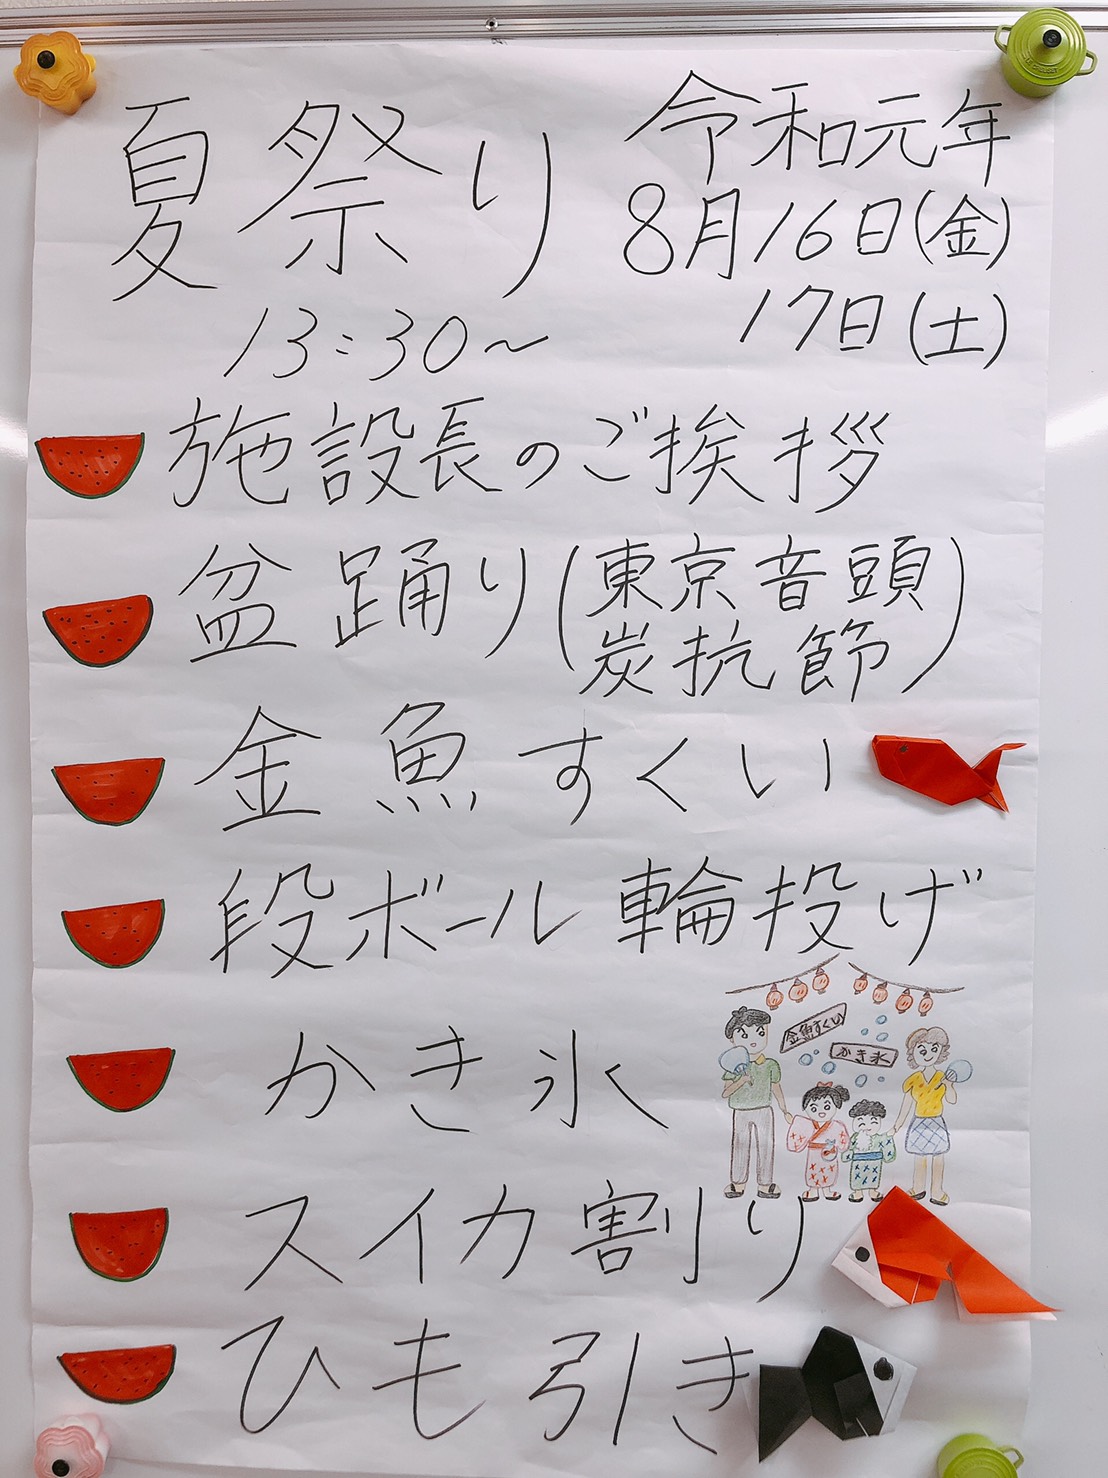 夏祭り
令和元年
8月16日(金)
17日(土)
13:30~
施設長のご挨拶
盆踊り(東京音頭
炭抗節)
金魚すくい
段ボール輪投げ
金魚すくい
かき氷
かき氷
スイカ割り
ひも引き